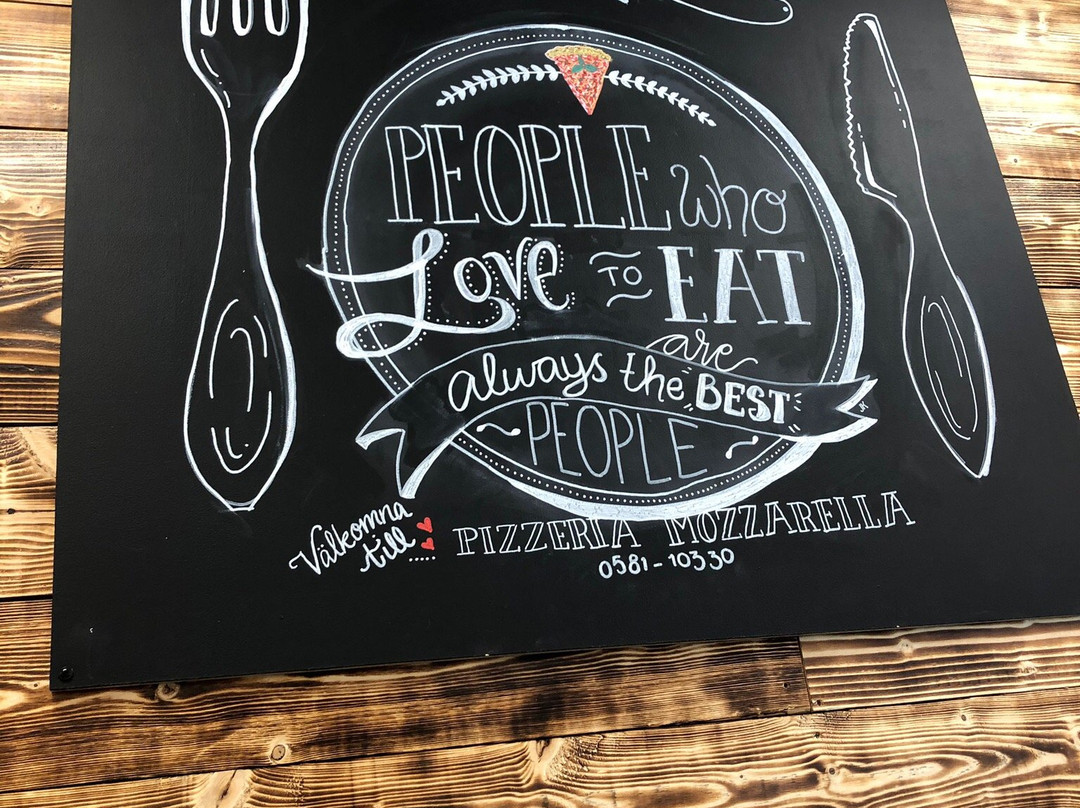 PEOPLE who
Love TO EAT
are
always the BEST
PEOPLE
Välkomna
till
PIZZERIA MOZZARELLA
0581-10330